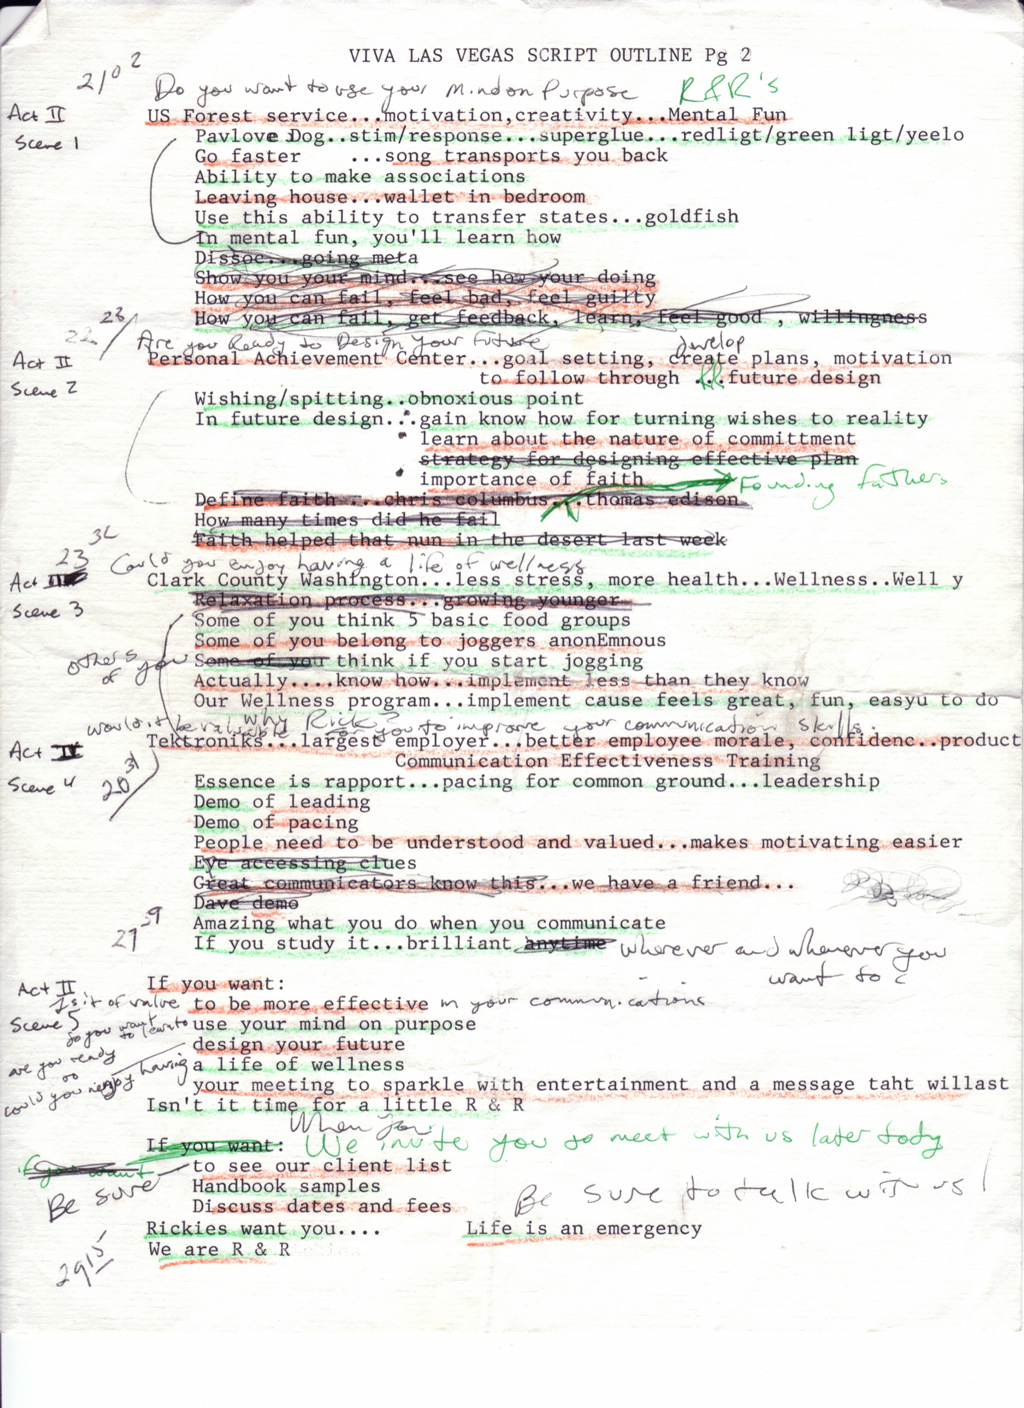 VIVA LAS VEGAS SCRIPT OUTLINE Pg 2
2102
Do you want to use your Mind on Purpose R&R's
Act II US Forest service...motivation,creativity...Mental Fun
Scene 1 Pavlove Dog..stim/response...superglue...redligt/green ligt/yeelo
Go faster ...song transports you back
Ability to make associations
Leaving house...wallet in bedroom
Use this ability to transfer states...goldfish
In mental fun, you'll learn how
Dissoc...going meta
Show you your mind...see how your doing
How you can fail, feel bad, feel guilty
How you can fail, get feedback, learn, feel good , willingness
23
Are you Ready to Design your Future develop
Act II Personal Achievement Center...goal setting, create plans, motivation
Scene 2 to follow through ...future design
Wishing/spitting..obnoxious point
In future design...gain know how for turning wishes to reality
• learn about the nature of committment
strategy for designing effective plan
• importance of faith Founding fathers
Define faith ...chris columbus...thomas edison
How many times did he fail
Faith helped that nun in the desert last week
23
Could you enjoy having a life of wellness
Act II Clark County Washington...less stress, more health...Wellness..Well y
Scene 3 Relaxation process...growing younger
Some of you think 5 basic food groups
Some of you belong to joggers anonEmnous
others of you Some of you think if you start jogging
Actually....know how...implement less than they know
Our Wellness program...implement cause feels great, fun, easyu to do
Why Rick?
would it be valuable for you to improve your communication skills.
Act II Tektroniks...largest employer...better employee morale, confidenc..product
Communication Effectiveness Training
Scene 4 Essence is rapport...pacing for common ground...leadership
Demo of leading
Demo of pacing
People need to be understood and valued...makes motivating easier
Eye accessing clues
Great communicators know this...we have a friend...
Dave demo
Amazing what you do when you communicate
If you study it...brilliant anytime wherever and whenever you
want to
Act II If you want:
Is it of value to be more effective in your communications
Scene 5 do you want to learn to use your mind on purpose
are you ready to design your future
could you enjoy having a life of wellness
your meeting to sparkle with entertainment and a message taht willast
Isn't it time for a little R & R
When you
If you want: We invite you to meet with us later today
if you want to see our client list
Be sure Handbook samples Be sure to talk with us!
Discuss dates and fees
Rickies want you.... Life is an emergency
We are R & R
2915